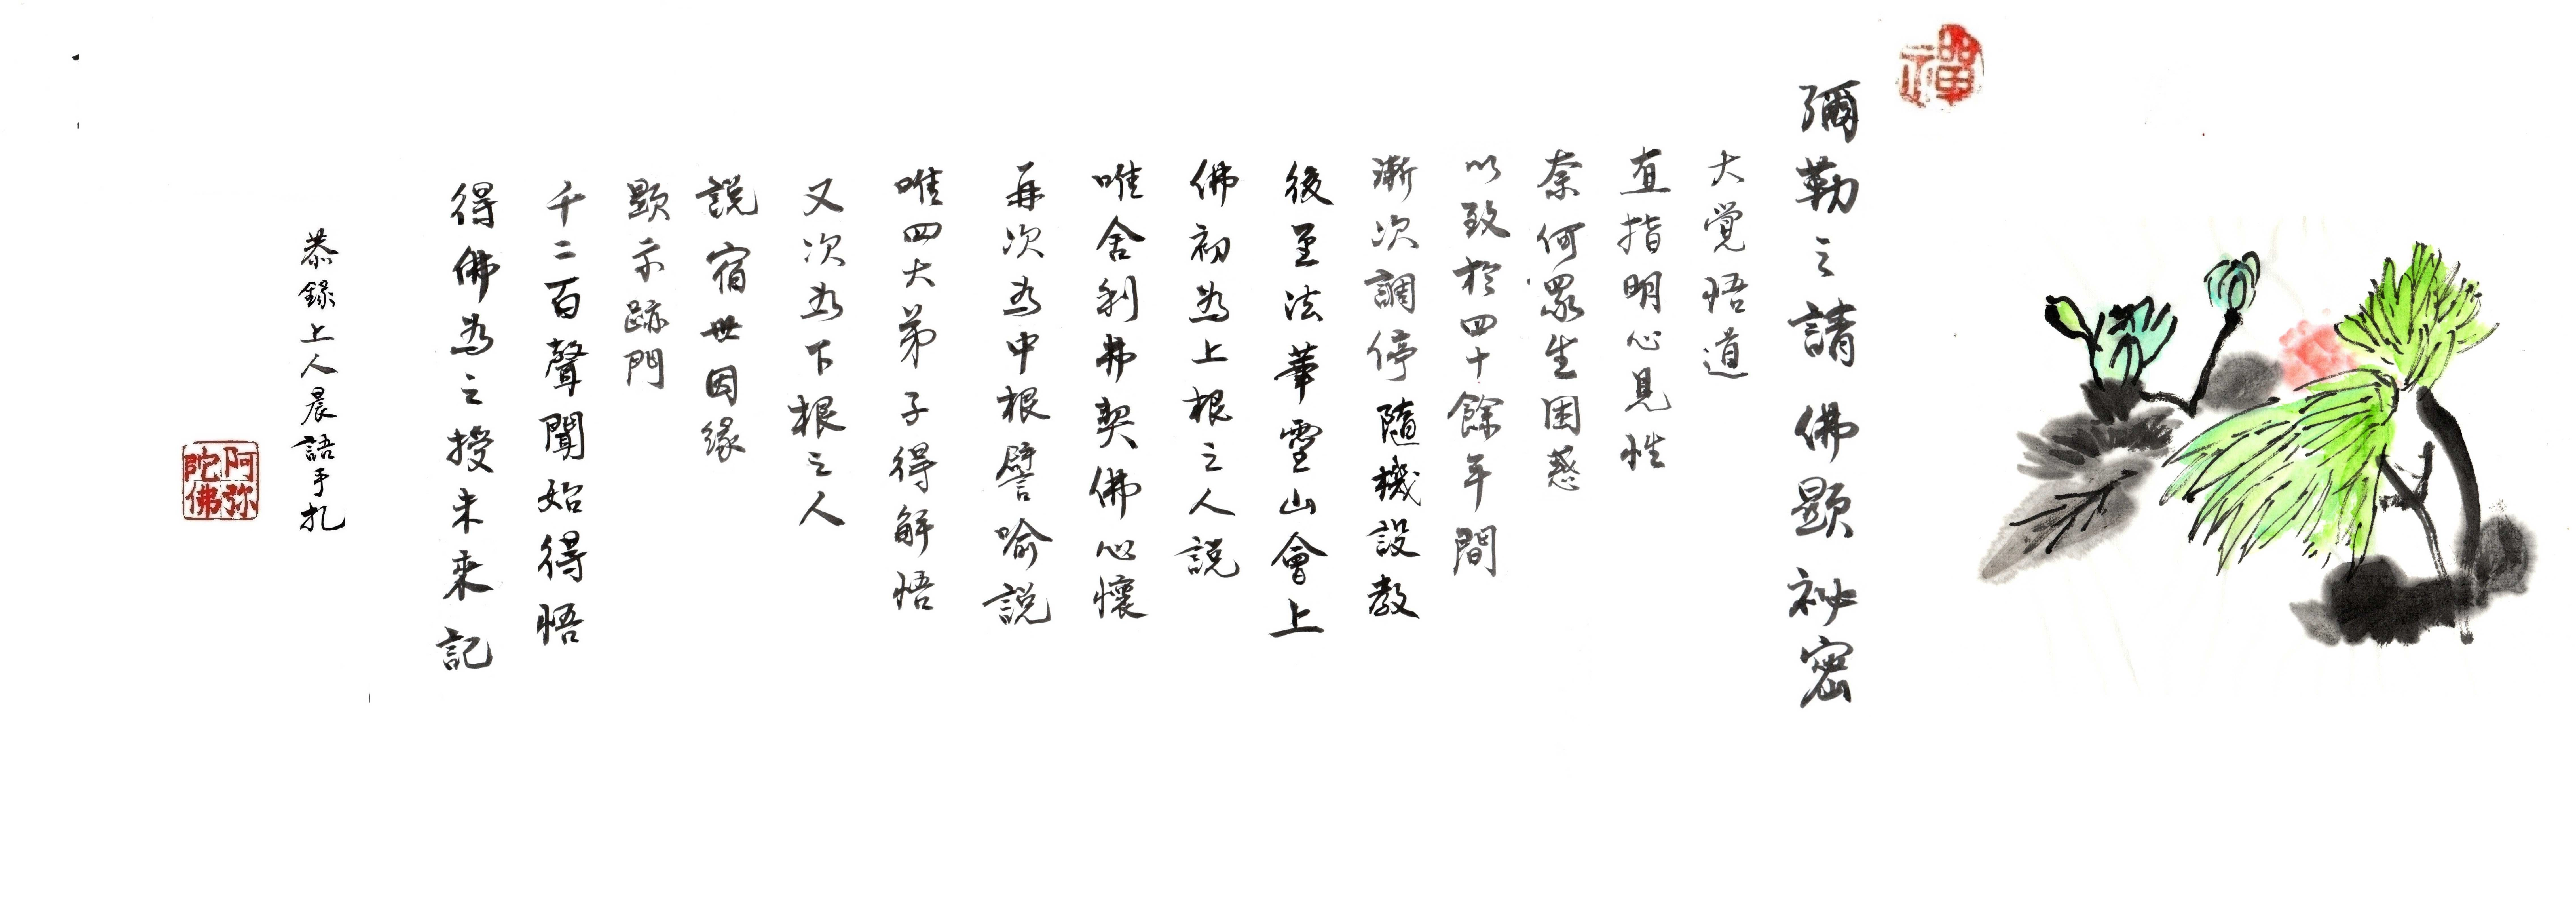 禪
彌勒之請佛顯祕密
大覺悟道
直指明心見性
奈何眾生困惑
以致於四十餘年間
漸次調停隨機設教
後至法華靈山會上
佛初為上根之人說
唯舍利弗契佛心懷
再次為中根譬喻說
唯四大弟子得解悟
又次為下根之人
說宿世因緣
顯示跡門
千二百聲聞始得悟
得佛為之授未來記
恭錄上人晨語手扎
阿弥
陀佛